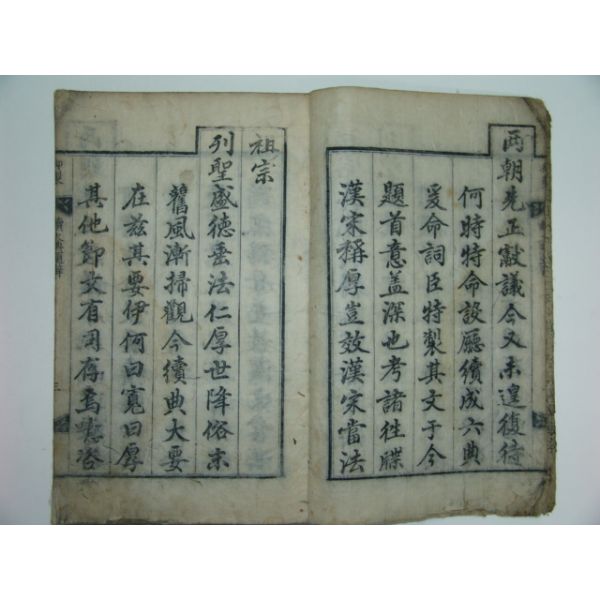 兩朝先正獻議今又未遑復待
何時特命設廳續成六典
爰命詞臣特製其文于今
題首意盖深也考諸往牒
漢宋稱厚豈效漢宋當法
祖宗
列聖盛德垂法仁厚世降俗末
舊風漸掃觀今續典大要
在茲其要伊何曰寬曰厚
其他節文有用存焉噫咨